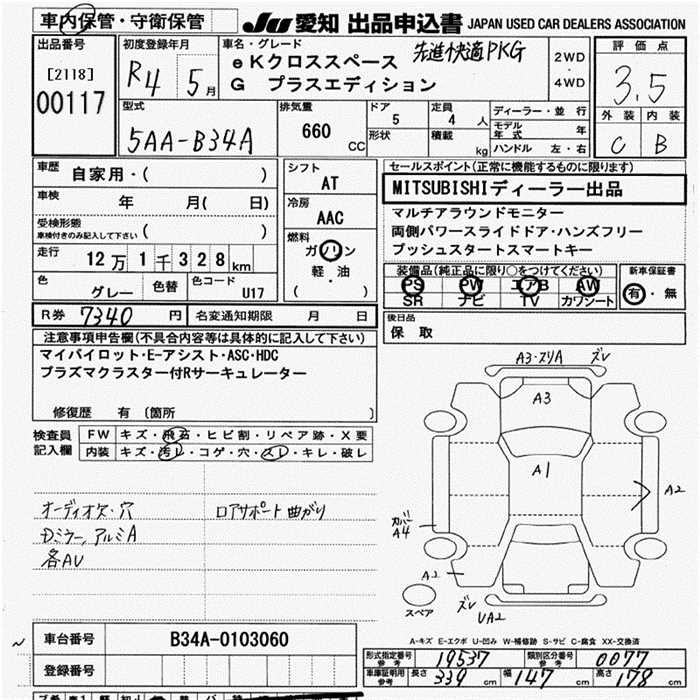 車内保管・守衛保管
JU 愛知 出品申込書 JAPAN USED CAR DEALERS ASSOCIATION
出品番号
[2118]
00117
初度登録年月
R4 5月
車名・グレード
先進快適PKG
eKクロススペース
G プラスエディション
2WD
4WD
評価点
3.5
外装 内装
C B
型式
5AA-B34A
排気量
660 CC
ドア
5
定員
4 人
形状
積載
kg
ディーラー・並行
モデル年式 年
ハンドル 左・右
車歴
自家用・( )
車検
年 月( 日)
受検形態
車検付きのみ記入して下さい ( )
走行
12万1千328km
色
グレー
色替
色コード
U17
シフト
AT
冷房
AAC
燃料
ガソリン
軽・油
( )
セールスポイント(正常に機能するものに限ります)
MITSUBISHIディーラー出品
マルチアラウンドモニター
両側パワースライドドア・ハンズフリー
プッシュスタートスマートキー
装備品(純正品に限り○をつけてください)
PS PW エアB AW
SR ナビ TV カワシート
新車保証書
有・無
R券 7340 円
名変通知期限 月 日
後日品
保 取
注意事項申告欄(不具合内容等は具体的に記入して下さい)
マイパイロット・E-アシスト・ASC・HDC
プラズマクラスター付Rサーキュレーター
修復歴 有 [箇所 ]
検査員
記入欄
FW キズ・飛石・ヒビ割・リペア跡・X要
内装 キズ・汚レ・コゲ・穴・スレ・キレ・破レ
オーディオ欠・穴
ロアサポート曲がり
Dミラー, アルミA
各AU
A3・スリA ズレ
A3
A1
A2
カバー
A4
A2
スペア
ズレ UA2
A-キズ E-エクボ U-凹み W-補修跡 S-サビ C-腐食 XX-交換済
車台番号
B34A-0103060
登録番号
形式指定番号
参考
19537
類別区分番号
参考
0077
車庫証明用
参考
長さ 339 cm
幅 147 cm
高さ 178 cm